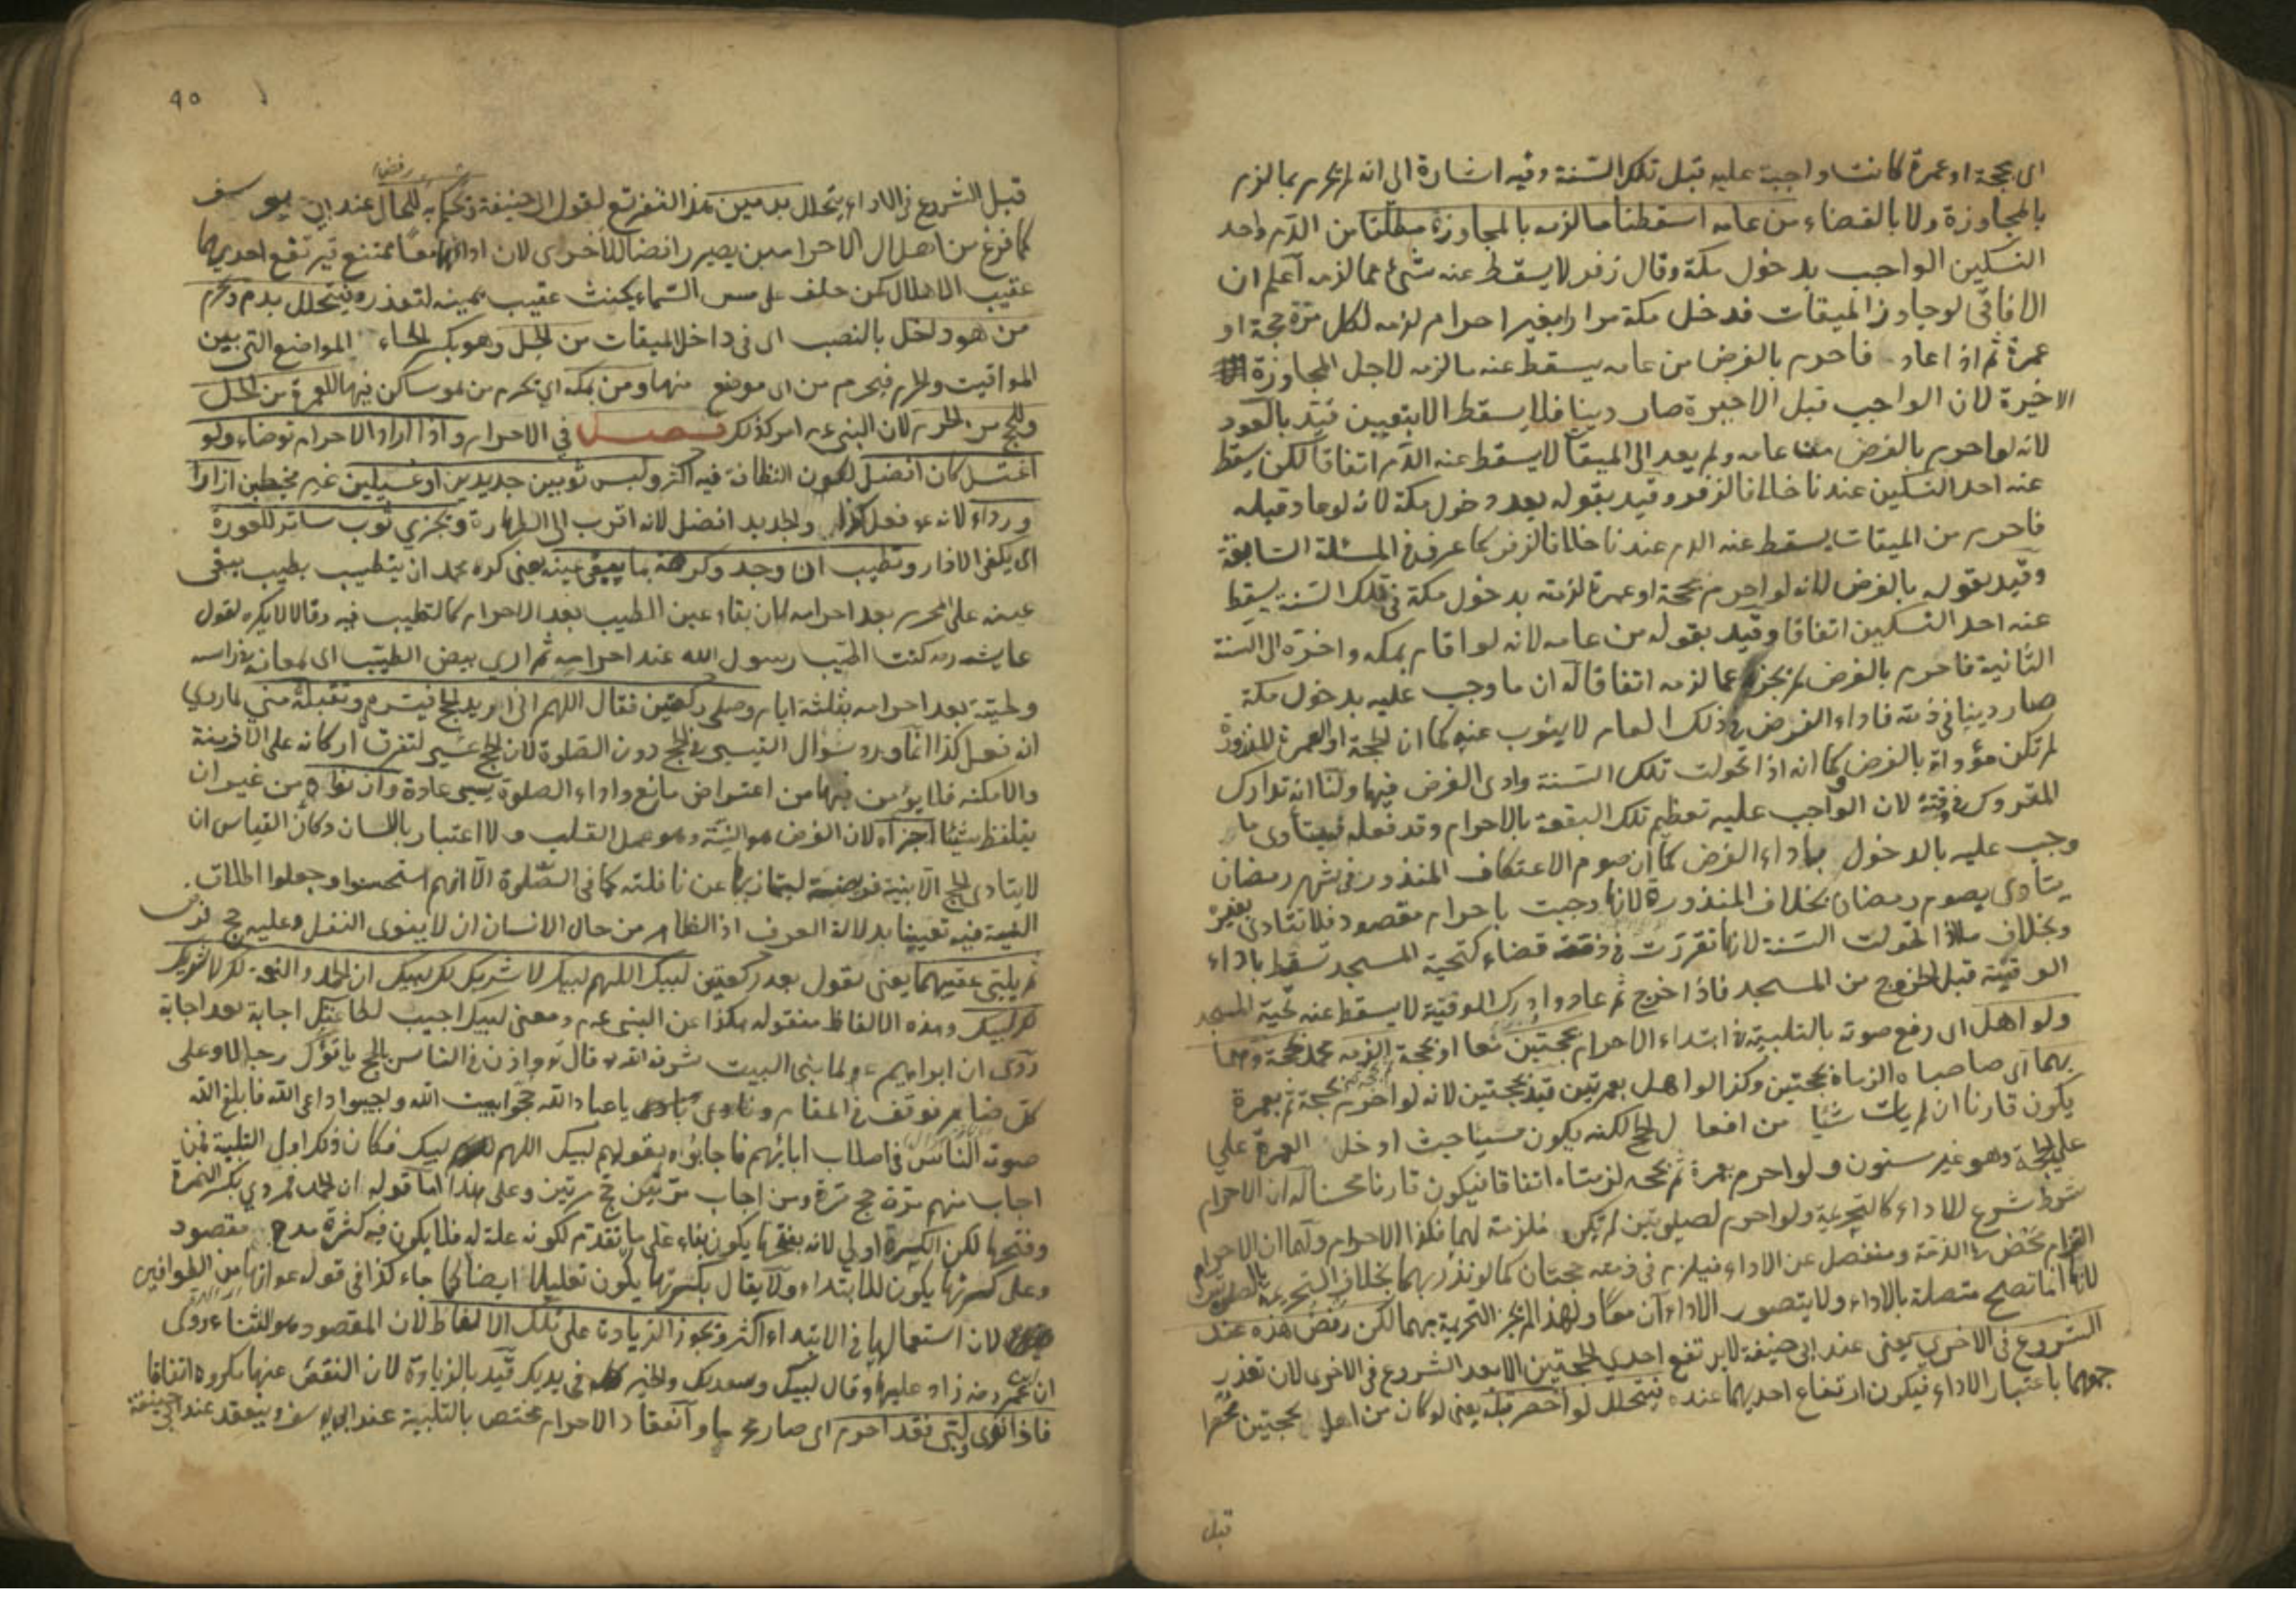 اى بحجة او عمرة كانت واجبة عليه قبل تلك السنة وفيه اشارة الى انه لم يحرم بما لزم
بالمجاوزة ولا بالقضاء من عامه اسقطنا ما لزمه بالمجاوزة مطلقا من الدم واحد
النسكين الواجب بدخول مكة وقال زفر لا يسقط عنه شئ مما لزمه اعلم ان
الافاقى لو جاوز الميقات فدخل مكة مرارا بغير احرام لزمه لكل مرة حجة او
عمرة ثم اذا عاد فاحرم بالفرض من عامه يسقط عنه ما لزمه لاجل المجاوزة
الاخيرة لان الواجب قبل الاخيرة صار دينا فلا يسقط الا بتعيين قيد بالعود
لانه لو احرم بالفرض من عامه ولم يعد الى الميقات لا يسقط عنه الدم اتفاقا لكن يسقط
عنه احد النسكين عندنا خلافا لزفر وقيد بقوله بعد دخول مكة لانه لو عاد قبله
فاحرم من الميقات يسقط عنه الدم عندنا خلافا لزفر كما عرف فى المسئلة السابقة
وقيد بقوله بالفرض لانه لو احرم بحجة او عمرة لزمته بدخول مكة فى تلك السنة يسقط
عنه احد النسكين اتفاقا وقيد بقوله من عامه لانه لو اقام بمكه واخره الى السنة
الثانية فاحرم بالفرض لم يجزه عما لزمه اتفاقا له ان ما وجب عليه بدخول مكة
صار دينا فى ذمته فاداء الفرض فى ذلك العام لا ينوب عنه كما ان الحجة او العمرة المنذورة
لم تكن مؤداة بالفرض وكما انه اذا تحولت تلك السنة وادى الفرض فيها ولنا انه تدارك
المتروك فى وقته لان الواجب عليه تعظيم تلك البقعة بالاحرام وقد فعله فيتأدى ما
وجب عليه بالدخول باداء الفرض كما ان صوم الاعتكاف المنذور فى شهر رمضان
يتادى بصوم رمضان بخلاف المنذورة لانها وجبت باحرام مقصود فلا تتادى بغيره
وبخلاف ما اذا تحولت السنة لانها تقررت فى ذمته قضاء كتحية المسجد تسقط باداء
الوقتية قبل الخروج من المسجد فاذا خرج ثم عاد وادرك الوقتية لا يسقط عنه تحية المسجد
ولو اهل اى رفع صوته بالتلبية فى ابتداء الاحرام بحجتين معا او بحجة الزمه محمد بحجة وهما
بهما اى صاحباه الزماه بحجتين وكذا لو اهل بعمرتين قيد بحجتين لانه لو احرم بحجة ثم بعمرة
يكون قارنا ان لم يات شيئا من افعال الحج لكنه يكون مسيئا حيث ادخل العمرة على
الحجة وهو غير مسنون ولو احرم بعمرة ثم بحجه لزمتاه اتفاقا فيكون قارنا محسنا له ان الاحرام
شرط شرع للاداء كالتحريمة ولو احرم لصلوتين لم تكن ملزمة لهما فكذا الاحرام ولهما ان الاحرام
التزام محض فى الذمة ومنفصل عن الاداء فيلزم فى ذمته حجتان كما لو نذر بهما بخلاف التحريمة بالصلوتين
لانها انما تصح متصلة بالاداء ولا يتصور الاداءان معا ولهذا لم يجز التحريمة بهما لكن رفض هذه عند
الشروع فى الاخرى يعنى عند ابى حنيفة لا يرتفع احدى الحجتين الا بعد الشروع فى الاخرى لان تعذر
جمعهما باعتبار الاداء فيكون ارتفاع احديهما عنده فيتحلل لو احصر قبله يعنى لو كان من اهل بحجتين محصرا
قبل
٩٥
قبل الشروع فى الاداء يتحلل بدمين هذا التفريع لقول ابى حنيفة وتحكم به للحال عند ابى يوسف
كما فرغ من اهلال الاحرامين يصير رافضا للاخرى لان اداءهما معا ممتنع فيرتفع احديهما
عقيب الاهلال كمن حلف على مس السماء يحنث عقيب يمينه لتعذره فيتحلل بدم ويحرم
من هو داخل بالنصب اى فى داخل الميقات من الحل وهو بكسر الحاء المواضع التى بين
المواقيت والحرم فيحرم من اى موضع منها ومن بمكه اى يحرم من هو ساكن فيها للعمرة من الحل
وللحج من الحرم لان النبى عم امر كذلك فصل في الاحرام واذا اراد الاحرام توضاء ولو
اغتسل كان افضل لكون النظافة فيه اكثر ولبس ثوبين جديدين او غسيلين غير مخيطين ازارا
ورداء لانه عم فعل كذا والجديد افضل لانه اقرب الى الطهارة ويجزي ثوب ساتر للعورة
اى يكفى الازار وتطيب ان وجد وكرهه بما يبقى عينه يعنى كره محمد ان يتطيب بطيب يبقى
عينه على المحرم بعد احرامه لان بقاء عين الطيب بعد الاحرام كالتطيب فيه وقالا لا يكره لقول
عايشه رضه كنت اطيب رسول الله عند احرامه ثم ارى وبيض الطيب اى لمعانه فى راسه
ولحيته بعد احرامه بثلثة ايام وصلى ركعتين فقال اللهم انى اريد الحج فيسره وتقبله منى لما روي
انه فعل كذا انما ورد سؤال التيسير فى الحج دون الصلوة لان الحج عسير لتفرق اركانه على الازمنة
والامكنه فلا يؤمن فيها من اعتراض مانع واداء الصلوة يسير عادة وان نواه من غير ان
يتلفظ شيئا اجزاه لان الفرض هو النية وهو عمل القلب ولا اعتبار باللسان وكان القياس ان
لا يتادى الحج الا بنية فريضة ليمتاز بها عن نافلته كما فى الصلوة الا انهم استحسنوا وجعلوا اطلاق
النية فيه تعيينا بدلالة العرف اذ الظاهر من حال الانسان ان لا ينوى النفل وعليه حج فرض
ثم يلبى عقيبهما يعنى يقول بعد ركعتين لبيك اللهم لبيك لا شريك لك لبيك ان الحمد والنعمة لك لا شريك
لك لبيك وهذه الالفاظ منقوله هكذا عن النبى عم ومعنى لبيك اجيب لطاعتك اجابة بعد اجابة
روى ان ابراهيم عم لما بنى البيت شرفه الله قال تع واذن فى الناس بالحج ياتوك رجالا وعلى
كل ضامر فوقف فى المقام ونادى يا عباد الله حجوا بيت الله واجيبوا داعى الله فابلغ الله
صوته الناس فى اصلاب ابائهم فاجابوه بقولهم لبيك اللهم لبيك فكان ذلك اول التلبية فمن
اجاب منهم مرة حج مرة ومن اجاب مرتين حج مرتين وعلى هذا اما قوله ان الحمد فمروي بكسر الهمزة
وفتحها لكن الكسرة اولي لانه بفتحها يكون بناء على ما تقدم لكونه علة له فلا يكون فيه كثرة مدح مقصود
وعلى كسرتها يكون للابتداء ولا يقال بكسرتها يكون تعليلا ايضا كما جاء كذا فى قوله عم انها من الطوافين
لان استعمالها فى الابتداء اكثر وتجوز الزيادة على تلك الالفاظ لان المقصود هو الثناء روى
ان ابن عمر رضه زاد عليها وقال لبيك وسعديك والخير كله فى يديك قيد بالزيادة لان النقص عنها مكروه اتفاقا
فاذا نوى ولبى فقد احرم اى صار محرما وانعقاد الاحرام مختص بالتلبية عند ابى يوسف وينعقد عند ابى حنيفة